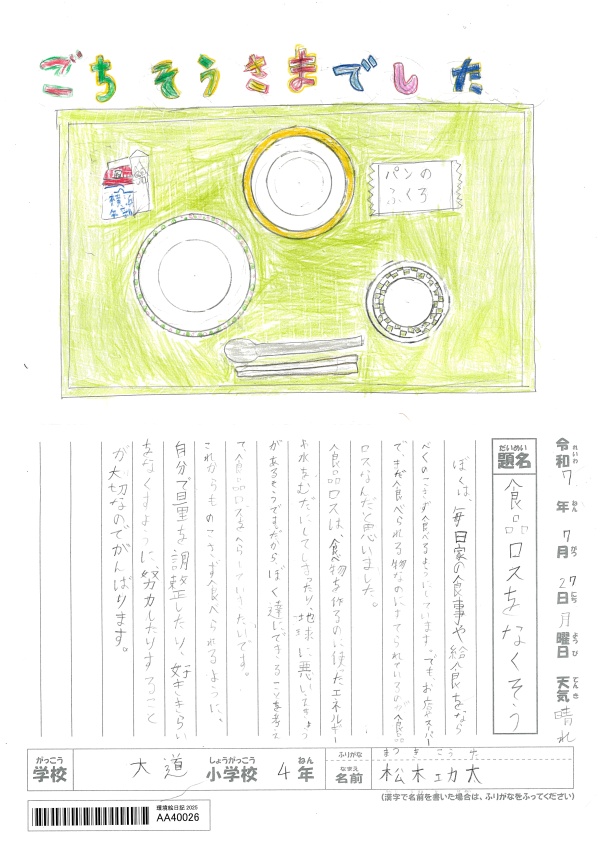 ごちそうさまでした
パンの
ふくろ
横浜
牛にゅう
令和7年7月27日月曜日 天気晴れ
れいわ ねん がつ にち ようび てんき
だいめい
題名
食品ロスをなくそう
ぼくは、毎日家の食事や給食をなる
べくのこさず食べるようにしています。でも、お店やスーパー
で、まだ食べられる物なのにすてられているのが食品
ロスなんだと思いました。
食品ロスは、食べ物を作るのに使ったエネルギー
や水もむだにしてしまったり、地球に悪いえいきょう
があるそうです。だから、ぼく達にできることを考え
て食品ロスをへらしていきたいです。
これからものこさず食べられるように、
自分で量を調整したり、好ききらい
をなくすように、努力したりすること
が大切なのでがんばります。
がっこう
学校
大道
しょうがっこう
小学校
4
ねん
年
ふりがな
まつ き こう た
なまえ
名前
松木功大
(漢字で名前を書いた場合は、ふりがなをふってください)
環境絵日記 2025
AA40026